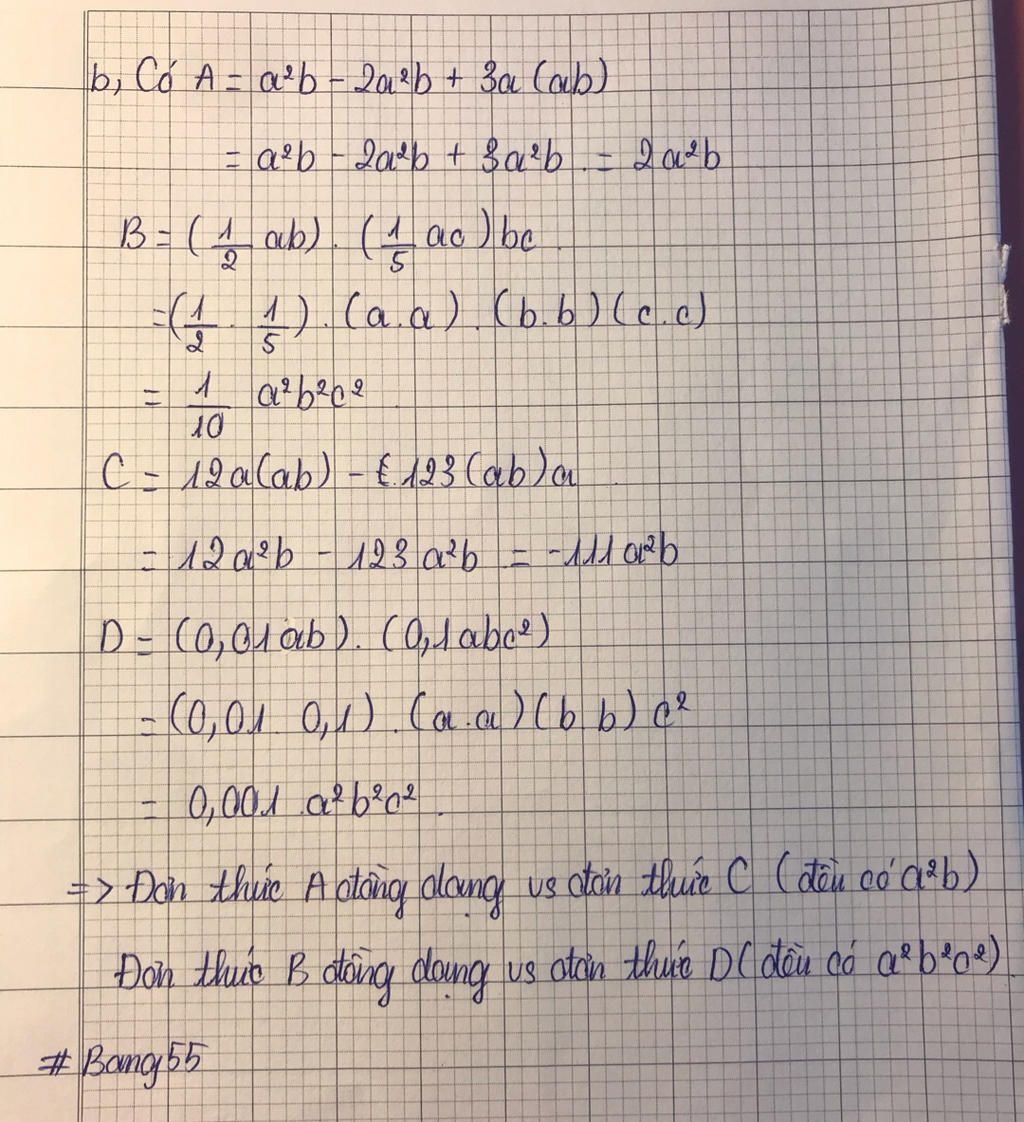 b, Có A = a²b - 2a²b + 3a (ab)
= a²b - 2a²b + 3a²b = 2a²b
B = (1/2 ab) . (1/5 ac) bc
= (1/2 . 1/5) . (a.a) . (b.b) (c.c)
= 1/10 a²b²c²
C = 12a(ab) - 123(ab)a
= 12a²b - 123a²b = -111a²b
D = (0,01ab) . (0,1abc²)
= (0,01 . 0,1) . (a.a) (b.b) c²
= 0,001 a²b²c².
=> Đơn thức A đồng dạng vs đơn thức C (đều có a²b)
Đơn thức B đồng dạng vs đơn thức D (đều có a²b²c²)
# Bang55